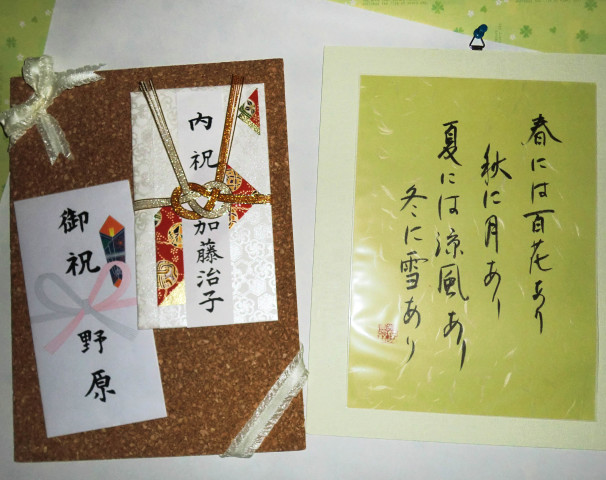 御祝
野原
内祝
加藤治子
春には百花あり
秋に月あり
夏には涼風あり
冬に雪あり